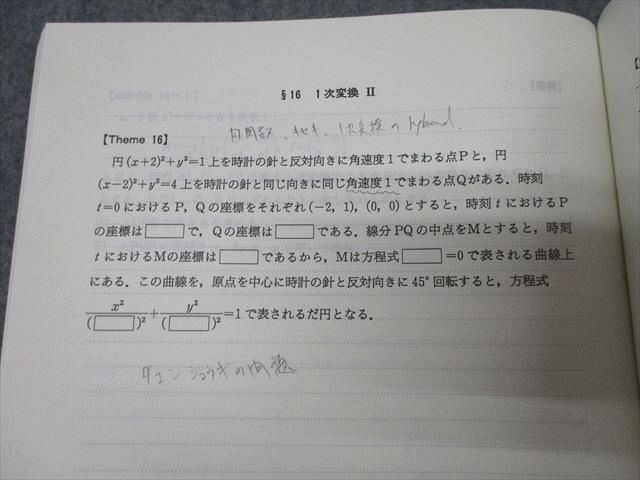 §16 1次変換 Ⅱ
【Theme 16】
円(x+2)²+y²=1上を時計の針と反対向きに角速度1でまわる点Pと，円
(x−2)²+y²=4上を時計の針と同じ向きに同じ角速度1でまわる点Qがある．時刻
t=0におけるP，Qの座標をそれぞれ(−2, 1), (0, 0)とすると，時刻tにおけるP
の座標は□で，Qの座標は□である．線分PQの中点をMとすると，時刻
tにおけるMの座標は□であるから，Mは方程式□=0で表される曲線上
にある．この曲線を，原点を中心に時計の針と反対向きに45°回転すると，方程式
x²/(□)²+y²/(□)²=1で表されるだ円となる．